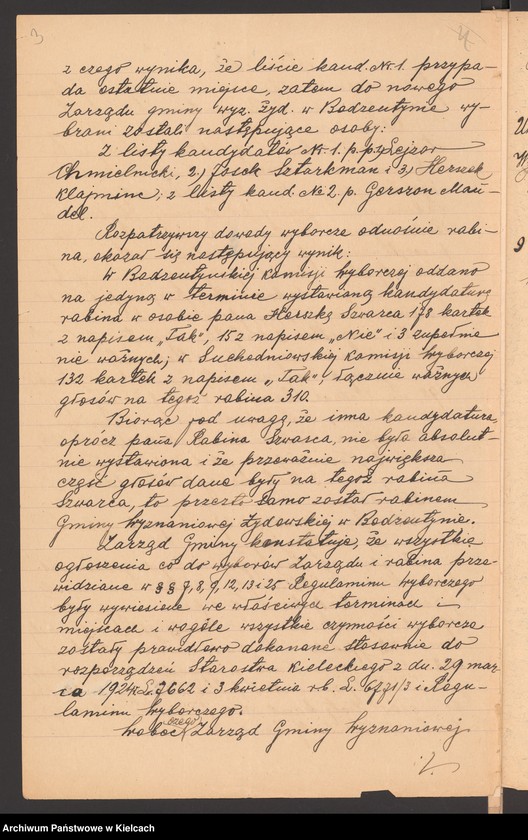 3
z czego wynika, że liście kand. Nr 1. przypa-
da ostatnie miejsce, zatem do nowego
Zarządu gminy wyz. żyd. w Bodzentynie wy-
brani zostali następujące osoby:
Z listy kandydatów Nr 1. p.p. Lejzor
Chmielnicki, 2) Josek Sztarkman i 3) Herszek
Klajminc; z listy kand. No 2. p. Gerszon Man-
del.
Rozpatrzywszy dowody wyborcze odnośnie rabi-
na, okazał się następujący wynik:
W Bodzentyńskiej Komisji Wyborczej oddano
na jedyną w terminie wystawioną kandydaturę
rabina w osobie pana Herszka Szwarca 178 kartek
z napisem „Tak", 15 z napisem „Nie" i 3 zupełnie
nie ważnych; w Suchedniowskiej Komisji Wyborczej
132 kartek z napisem „Tak"; łącznie ważnych
głosów na tegoż rabina 310.
Biorąc pod uwagę, że inna kandydatura,
oprócz pana Rabina Szwarca, nie była absolut-
nie wystawiona i że przeważnie największa
część głosów dane były na tegoż rabina
Szwarca, to przez to samo został rabinem
Gminy Wyznaniowej Żydowskiej w Bodzentynie.
Zarząd Gminy konstatuje, że wszystkie
ogłoszenia co do wyborów Zarządu i rabina prze-
widziane w §§ 7, 8, 9, 12, 13 i 25 Regulaminu Wyborczego
były wywieszone we właściwych terminach i
miejscach i wogóle wszystkie czynności wyborcze
zostały prawidłowo dokonane stosownie do
rozporządzeń Starostwa Kieleckiego z dn. 29 mar-
ca 1924 L. 7662 i 3 kwietnia rb. L. i Regu-
laminu Wyborczego.
Wobec czego Zarząd Gminy Wyznaniowej
Archiwum Państwowe w Kielcach